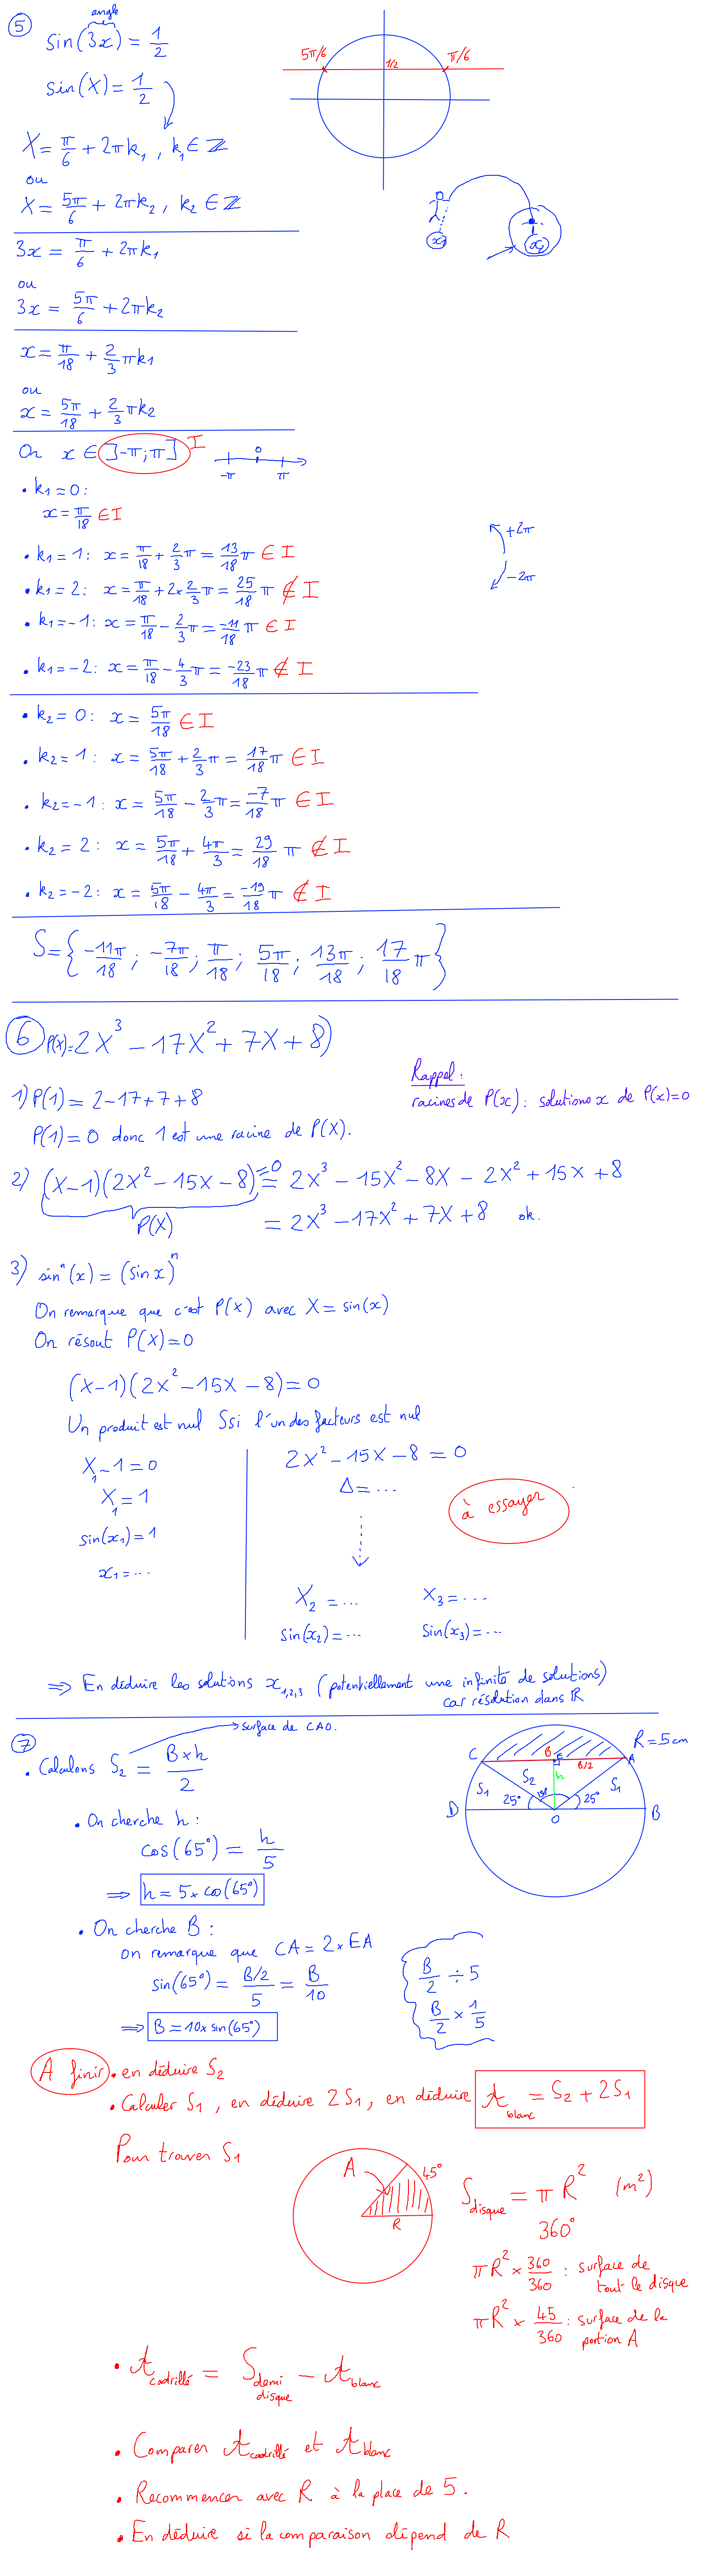 ⑤ angle
sin(3x) = 1/2
sin(X) = 1/2
5π/6 1/2 π/6
X = π/6 + 2πk₁ , k₁ ∈ ℤ
ou
X = 5π/6 + 2πk₂ , k₂ ∈ ℤ
x₁ x₂
3x = π/6 + 2πk₁
ou
3x = 5π/6 + 2πk₂
x = π/18 + 2/3 πk₁
ou
x = 5π/18 + 2/3 πk₂
Or x ∈ ]-π;π] I
-π 0 π
• k₁ = 0:
x = π/18 ∈ I
+2π
-2π
• k₁ = 1: x = π/18 + 2/3 π = 13/18 π ∈ I
• k₁ = 2: x = π/18 + 2×2/3 π = 25/18 π ∉ I
• k₁ = -1: x = π/18 - 2/3 π = -11/18 π ∈ I
• k₁ = -2: x = π/18 - 4/3 π = -23/18 π ∉ I
• k₂ = 0: x = 5π/18 ∈ I
• k₂ = 1: x = 5π/18 + 2/3 π = 17/18 π ∈ I
• k₂ = -1: x = 5π/18 - 2/3 π = -7/18 π ∈ I
• k₂ = 2: x = 5π/18 + 4π/3 = 29/18 π ∉ I
• k₂ = -2: x = 5π/18 - 4π/3 = -19/18 π ∉ I
S = {-11π/18 ; -7π/18 ; π/18 ; 5π/18 ; 13π/18 ; 17/18 π}
⑥ P(X) = 2X³ - 17X² + 7X + 8)
Rappel :
racines de P(x) : solutions x de P(x)=0
1) P(1) = 2 - 17 + 7 + 8
P(1) = 0 donc 1 est une racine de P(X).
2) (X-1)(2X² - 15X - 8) = 0 = 2X³ - 15X² - 8X - 2X² + 15X + 8
P(X) = 2X³ - 17X² + 7X + 8 ok.
3) sinⁿ(x) = (sin x)ⁿ
On remarque que c'est P(X) avec X = sin(x)
On résout P(X) = 0
(X-1)(2X² - 15X - 8) = 0
Un produit est nul Ssi l'un des facteurs est nul
X₁ - 1 = 0
X₁ = 1
sin(x₁) = 1
x₁ = ...
2X² - 15X - 8 = 0
Δ = ...
à essayer
X₂ = ... X₃ = ...
sin(x₂) = ... sin(x₃) = ...
⇒ En déduire les solutions x₁,₂,₃ (potentiellement une infinité de solutions)
car résolution dans ℝ
⑦ surface de CAO.
• Calculons S₂ = B×h/2
R = 5cm
C B E A
B/2
h
S₁ S₂ S₁
25° 130° 25°
D O B
• On cherche h :
cos(65°) = h/5
⇒ h = 5×cos(65°)
• On cherche B :
on remarque que CA = 2×EA
sin(65°) = B/2/5 = B/10
⇒ B = 10×sin(65°)
B/2 ÷ 5
B/2 × 1/5
A finir • en déduire S₂
• Calculer S₁ , en déduire 2S₁, en déduire A blanc = S₂ + 2S₁
Pour trouver S₁
A 45°
R
S disque = πR² (m²)
360°
πR² × 360/360 : surface de tout le disque
πR² × 45/360 : surface de la portion A
• A cadrillé = S demi disque - A blanc
• Comparer A cadrillé et A blanc
• Recommencer avec R à la place de 5.
• En déduire si la comparaison dépend de R